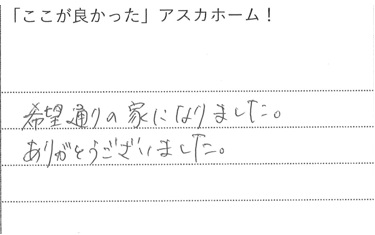 「ここが良かった」アスカホーム！
希望通りの家になりました。
ありがとうございました。